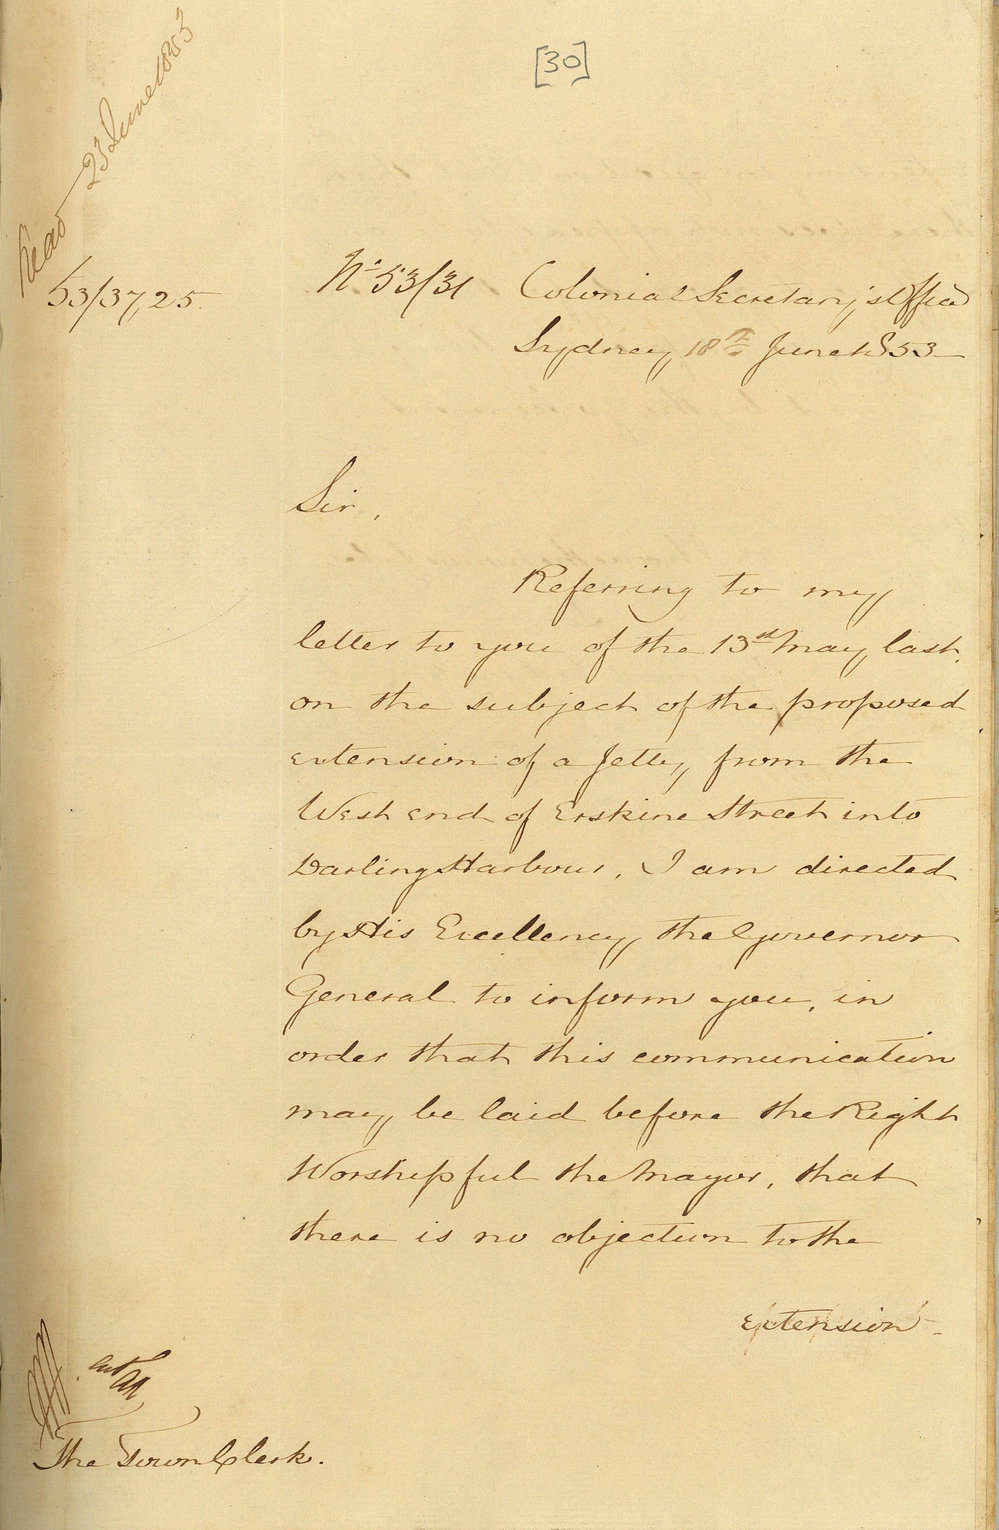 [30]
Read 23 June 1853
53/3725.
No. 53/31 Colonial Secretary's Office
Sydney, 18th June 1853
Sir,
Referring to my
letter to you of the 13th May, last,
on the subject of the proposed
extension of a Jetty, from the
West end of Erskine Street into
Darling Harbour, I am directed
by His Excellency, the Governor
General to inform you, in
order that this communication
may, be laid before the Right
Worshipful the Mayor, that
there is no objection to the
extension
The Town Clerk.